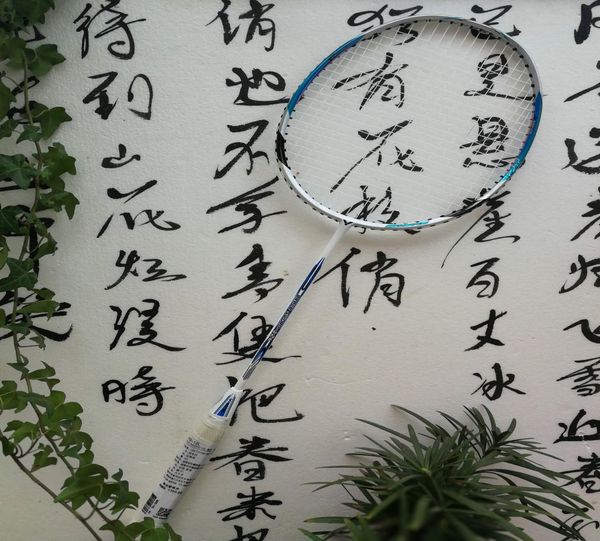 风雨送春归飞雪迎春
已是悬崖百丈冰
犹有花枝俏
俏也不争春只把春来报
待到山花烂漫時